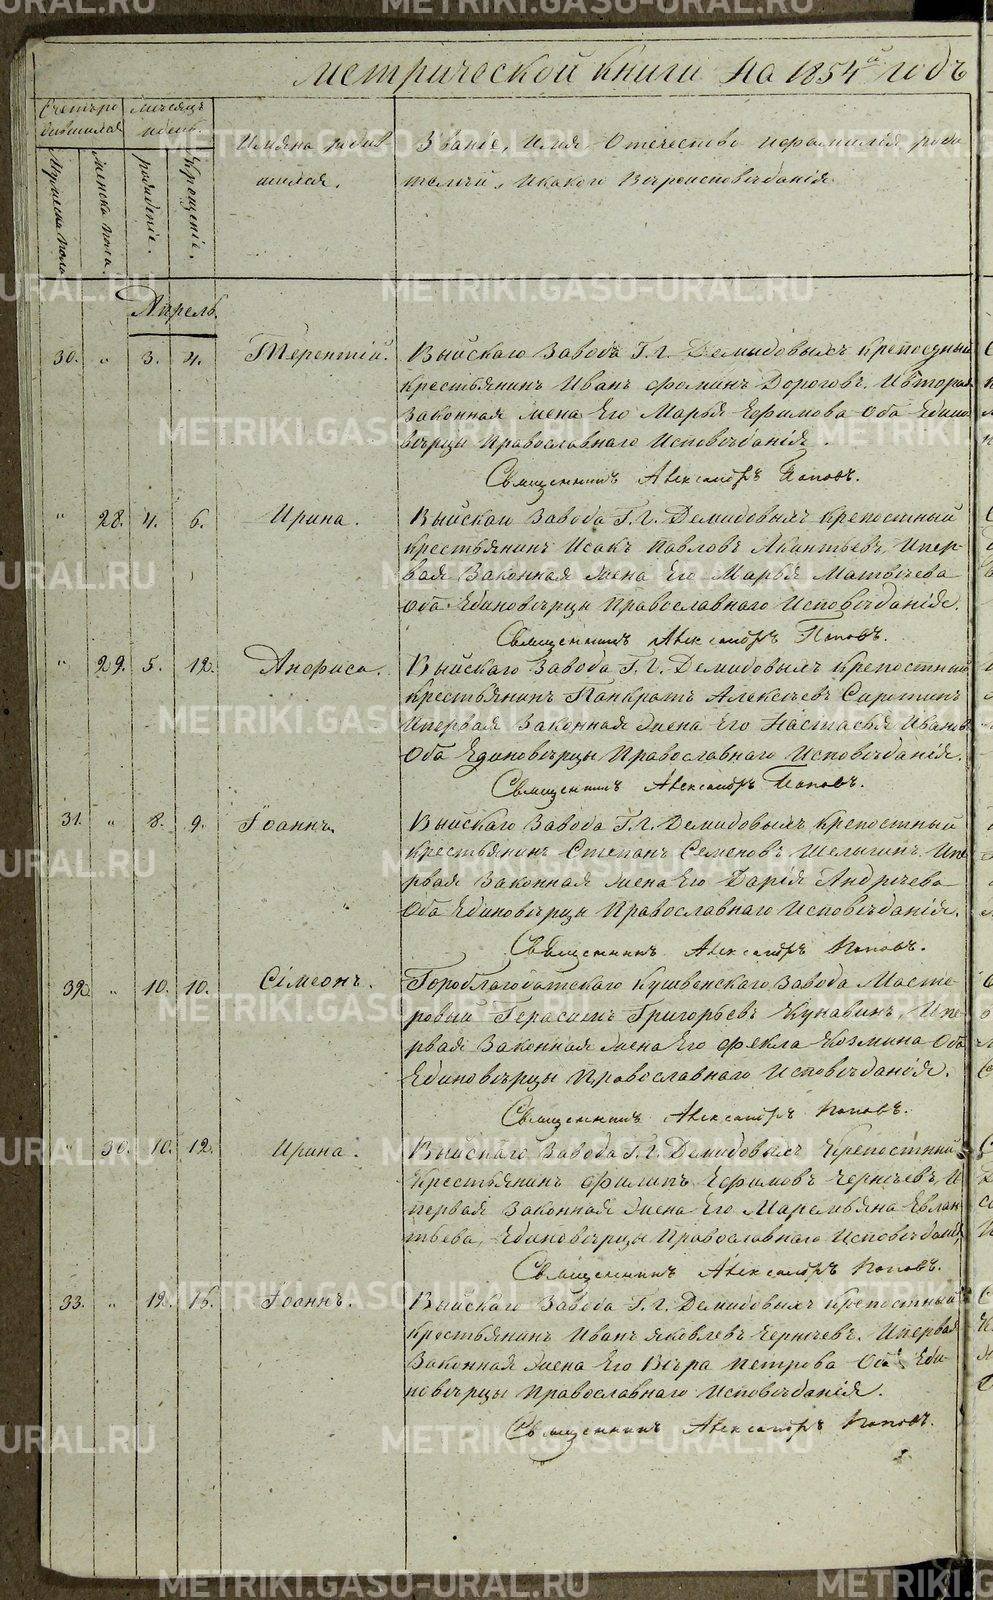 метрической книги на 1854й годъ
Счетъ ро
дившихся
мѣсяцъ
и день.
Мужеска пола
женска пола
рожденіе.
Крещеніе.
Имяна родив
шихся.
Званіе, Имя Отечество и фамилія, роди
телей, и какого Вѣроисповѣданія.
Апрель.
30. „ 3. 4. Терентій. Выйскаго Завода Г. г. Демидовыхъ крепосный
крестьянинъ Иванъ Фоминъ Дороговъ, и вторая
законная жена Его Марья Ефимова Оба Едино
вѣрцы Православнаго Исповѣданія.
Священникъ Александръ Поповъ.
„ 28. 4. 6. Ирина. Выйскаго Завода Г. г. Демидовыхъ крепостный
крестьянинъ Исакъ Павловъ Акинтьевъ, и пер-
вая Законная жена Его Марья Матвѣева
Оба Единовѣрцы Православнаго Исповѣданія.
Священникъ Александръ Поповъ.
„ 29. 5. 12. Анфиса. Выйскаго Завода Г. г. Демидовыхъ крепостный
крестьянинъ Панкратъ Алексѣевъ Сиротинъ
и первая Законная жена Его Настасья Иванов
Оба Единовѣрцы Православнаго Исповѣданія.
Священникъ Александръ Поповъ.
31. „ 8. 9. Іоаннъ. Выйскаго Завода Г. г. Демидовыхъ крепостный
крестьянинъ Степанъ Семеновъ Шелыгинъ и пе
рвая Законная жена Его Дарія Андрѣева
Оба Единовѣрцы Православнаго Исповѣданія.
Священникъ Александръ Поповъ.
32. „ 10. 10. Сімеонъ. Гороблагодатскаго Кушвенскаго Завода Масте-
ровый Герасимъ Григорьевъ Кунавинъ, и пе
рвая Законная жена Его Фекла Козмина Оба
Единовѣрцы Православнаго Исповѣданія.
Священникъ Александръ Поповъ.
30. 10. 12. Ирина. Выйскаго Завода Г. г. Демидовыхъ Крепостный
Крестьянинъ Филипъ Ефимовъ Чернѣевъ, и
первая Законная жена Его Маремьяна Евлан
тьева, Единовѣрцы Православнаго Исповѣданія,
Священникъ Александръ Поповъ.
33. „ 12. 15. Іоаннъ. Выйскаго Завода Г. г. Демидовыхъ Крепостный
крестьянинъ Иванъ Яковлевъ Чернѣевъ. и первая
Законная жена Его Вѣра Петрова Оба Еди-
новѣрцы Православнаго Исповѣданія.
Священникъ Александръ Поповъ.
METRIKI.GASO-URAL.RU